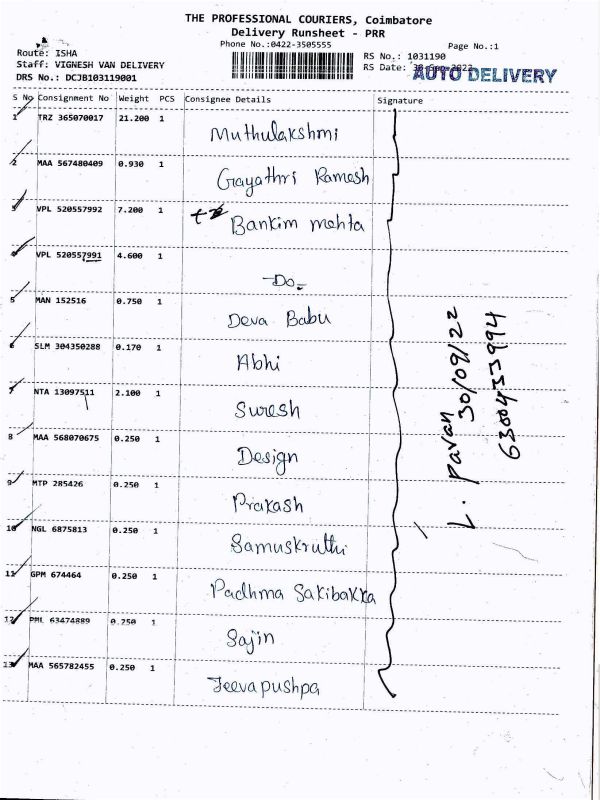 THE PROFESSIONAL COURIERS, Coimbatore
Delivery Runsheet - PRR
Phone No.:0422-3505555
Page No.:1
Route: ISHA
RS No.: 1031190
Staff: VIGNESH VAN DELIVERY
RS Date: 30-Sep-2022
AUTO DELIVERY
DRS No.: DCJB103119001
S No Consignment No Weight PCS Consignee Details Signature
1 TRZ 365070017 21.200 1 Muthulakshmi
2 MAA 567480409 0.930 1 Gayathri Ramesh
3 VPL 520557992 7.200 1 Bankim mehta
4 VPL 520557991 4.600 1 -Do-
5 MAN 152516 0.750 1 Deva Babu
6 SLM 304350288 0.170 1 Abhi
7 NTA 13097511 2.100 1 Suresh
8 MAA 568070675 0.250 1 Design
9 MTP 285426 0.250 1 Prakash
10 NGL 6875813 0.250 1 Samuskruthi
11 GPM 674464 0.250 1 Padhma Sakibakka
12 PML 63474889 0.250 1 Sajin
13 MAA 565782455 0.250 1 Jeevapushpa
L. Pavan
30/09/22
6300433994